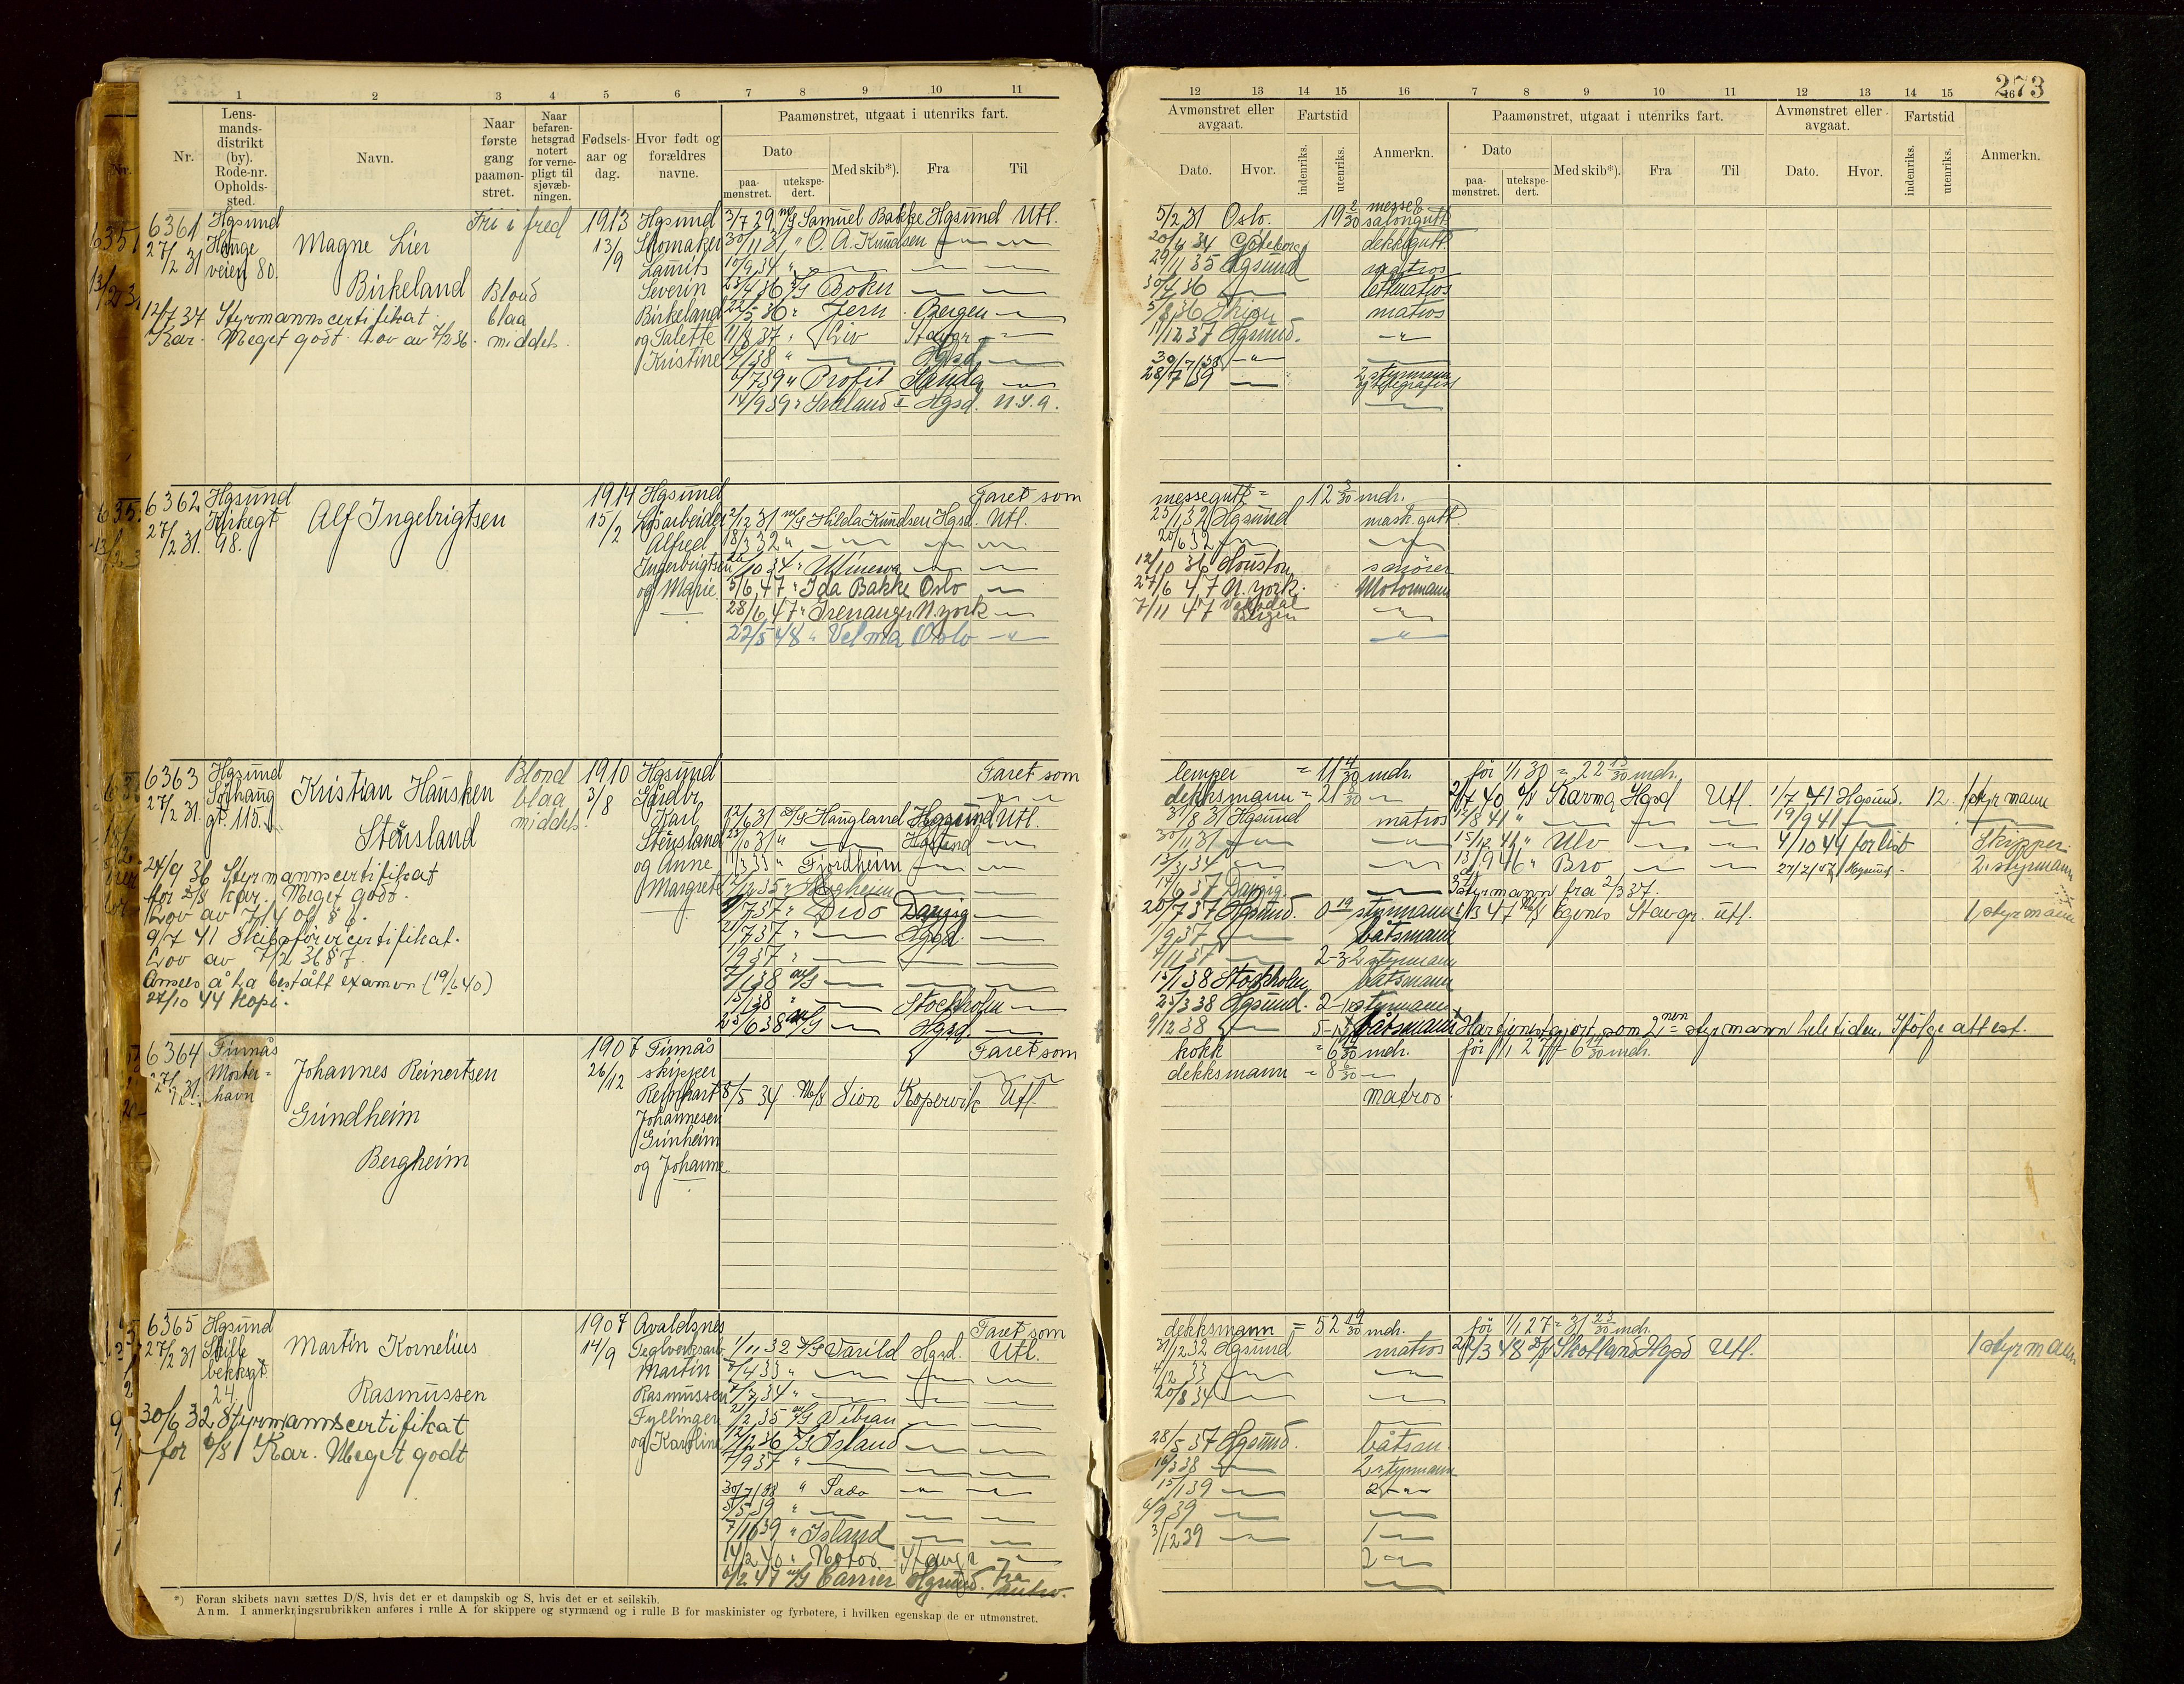 273
1 2 3 4 5 6 7 8 9 10 11
Nr.
Lens-
mands-
distrikt
(by).
Rode-nr.
Opholds-
sted.
Navn.
Naar
første
gang
paamøn-
stret.
Naar
befaren-
hetsgrad
notert
for verne-
pligt til
sjøvæb-
ningen.
Fødsels-
aar og
dag.
Hvor født og
forældres
navne.
Paamønstret, utgaat i utenriks fart.
Dato
paa-
mønstret.
utekspe-
dert.
Med skib*).
Fra
Til
12 13 14 15 16 7 8 9 10 11 12 13 14 15 16
Avmønstret eller
avgaat.
Dato.
Hvor.
Fartstid
indenriks.
utenriks.
Anmerkn.
Paamønstret, utgaat i utenriks fart.
Dato
paa-
mønstret.
utekspe-
dert.
Med skib*).
Fra
Til
Avmønstret eller
avgaat.
Dato.
Hvor.
Fartstid
indenriks.
utenriks.
Anmerkn.
6361
27/2 31
Hgsund
Hauge
veien 80.
Magne Lier
Birkeland
Fri i fred
Blond
blaa
middels
1913
13/9
Hgsund
Skomaker
Laurits
Severin
Birkeland
og Talette
Kristine
12/7 37 Styrmannscertifikat
Kar. Meget godt. Lov av 7/2 36.
3/7 29 m/s Samuel Bakke Hgsund Utl.
30/11 31 " O. A. Knudsen
10/9 34 "
23/4 36 Bokn
22/5 36 " Jern Bergen
11/8 37 " Liv Stavgr
7/1 38 " Hgsd.
6/7 39 " Profit Sauda
14/9 39 " Skotland Hgsd. N.S.A.
5/2 31 Oslo. 19 messe &
salongutt
20/6 34 Gøteborg dekksgutt
29/11 35 Hgsund matros
30/4 36 lettmatros
5/8 36 Skien matros
11/12 37 Hgsund.
30/7/38
28/7 39 2 styrmann
og telegrafist
6362
27/2 31.
Hgsund
Kirkegt
98.
Alf Ingebrigtsen
1914
15/2
Hgsund
Løsarbeider
Alfred
Ingebrigtsen
og Marie
Faret som
2/12 31 m/s Hilda Knudsen Hgsd. Utl.
18/3 32 "
22/10 34 " Minerva
5/6 47 " Ida Bakke Oslo
28/6 47 " Trevanger N.York
22/5 48 " Velma Oslo
messegutt = 12 mdr.
25/1 32 Hgsund mask.gutt
20/6 32
12/10 36 Houston smører
27/6 47 N.York. Motormann
7/11 47 Vaksdal
Bergen
6363
27/2 31.
Hgsund
Sørhaug
gt. 115.
Kristian Hausken
Stensland
Blond
blaa
middels
1910
3/8
Hgsund
Gårdbr.
Karl
Stensland
og Anne
Margrete
24/9 36 Styrmannscertifikat
for D/S Kar. Meget godt.
Lov av 7/4 06 § 6.
9/7 41 Skibsførercertifikat.
Lov av 7/2 36 § 7.
Ansees å ha bestått examen (19/6 40)
27/10 44 Kopi.
Faret som
12/6 31 D/S Haugland Hgsund Utl.
23/10 31 " Hgsund
11/3 33 " Fjordheim
35 " Hegheim
737 " Dido Danzig
21/7 37 " Hgsd.
1/9 37 "
7/1 38 m/s
15/1 38 " Stockholm
25/6 38 m/s Hgsd.
lemper = 11 4/30 mdr. før 1/1 30 = 22 13/30 mdr.
dekksmann = 21 8/30
31/8 31 Hgsund matros
30/11 31
13/3 34
14/6 37 Danzig
20/7 37 Hgsund. 0 19 styrmann
1/9 37 båtsmann
4/11 37 2-3 2 styrmann
15/1 38 Stockholm båtsmann
25/3 38 Hgsund. 2-10 styrmann
9/12 38 5-15 båtsmann
Har tjenestgjort som 2nen styrmann hele tiden. Ifølge attest.
2/7 40 D/S Karma Hgsd Utl. 1/7 41 Hgsund. 12. 1 styrmann
12/8 41 " 19/9 41
15/12 41 " Ulv 4/10 44 forlist Skipper
13/9 46 " Bro 27/2/47 Hgsund. 2. styrmann
3 styrmann fra 2/3 37.
1/3 47 M/S Egenes Stavgr. Utl. 1 styrmann
6364
27/2 31.
Finnås
Moster-
havn
Johannes Reinertsen
Grindheim
Bergheim
1907
26/12
Finnås
skipper
Reinhart
Johannesen
Grinheim
og Johanne
Faret som
8/5 34 M/S Sion Kopervik Utl.
kokk = 6 mdr. før 1/1 27 = 6 mdr.
dekksmann = 8
matros
6365
27/2 31
Hgsund
Skille
bekkgt
24.
Martin Kornelius
Rasmussen
1907
14/9
Avaldsnes
Teglverksarb.
Martin
Rasmussen
Fyllingen
og Karoline
30/6 32 Styrmannscertifikat
for D/S Kar. Meget godt
Faret som
1/11 32 D/S Varild Hgsd. Utl.
5/4 33 "
7/7 34 "
35 m/s Vibran
12/12 36 D/S Island
1/9 37 "
30/7/38 " Sado
5/5 39 "
7/10 39 " Island
14/2 40 " Motor Stavgr
6/2 47 m/s Carrier Hgsund. fra
Antw.
dekksmann = 52 19/30 mdr. før 1/1 27 = 31 23/30 mdr.
31/12 32 Hgsund matros 21/3 48 D/S Skotland Hgsd Utl. 1 styrmann
4/12 33
20/8 34
28/5 37 Hgsund. båtsm.
16/3 38 2. styrmann
15/1 39 2
4/9 39
3/12 39 1
2
*) Foran skibets navn sættes D/S, hvis det er et dampskib og S, hvis det er et seilskib.
Anm. I anmerkningsrubrikken anføres i rulle A for skippere og styrmænd og i rulle B for maskinister og fyrbøtere, i hvilken egenskap de er utmønstret.